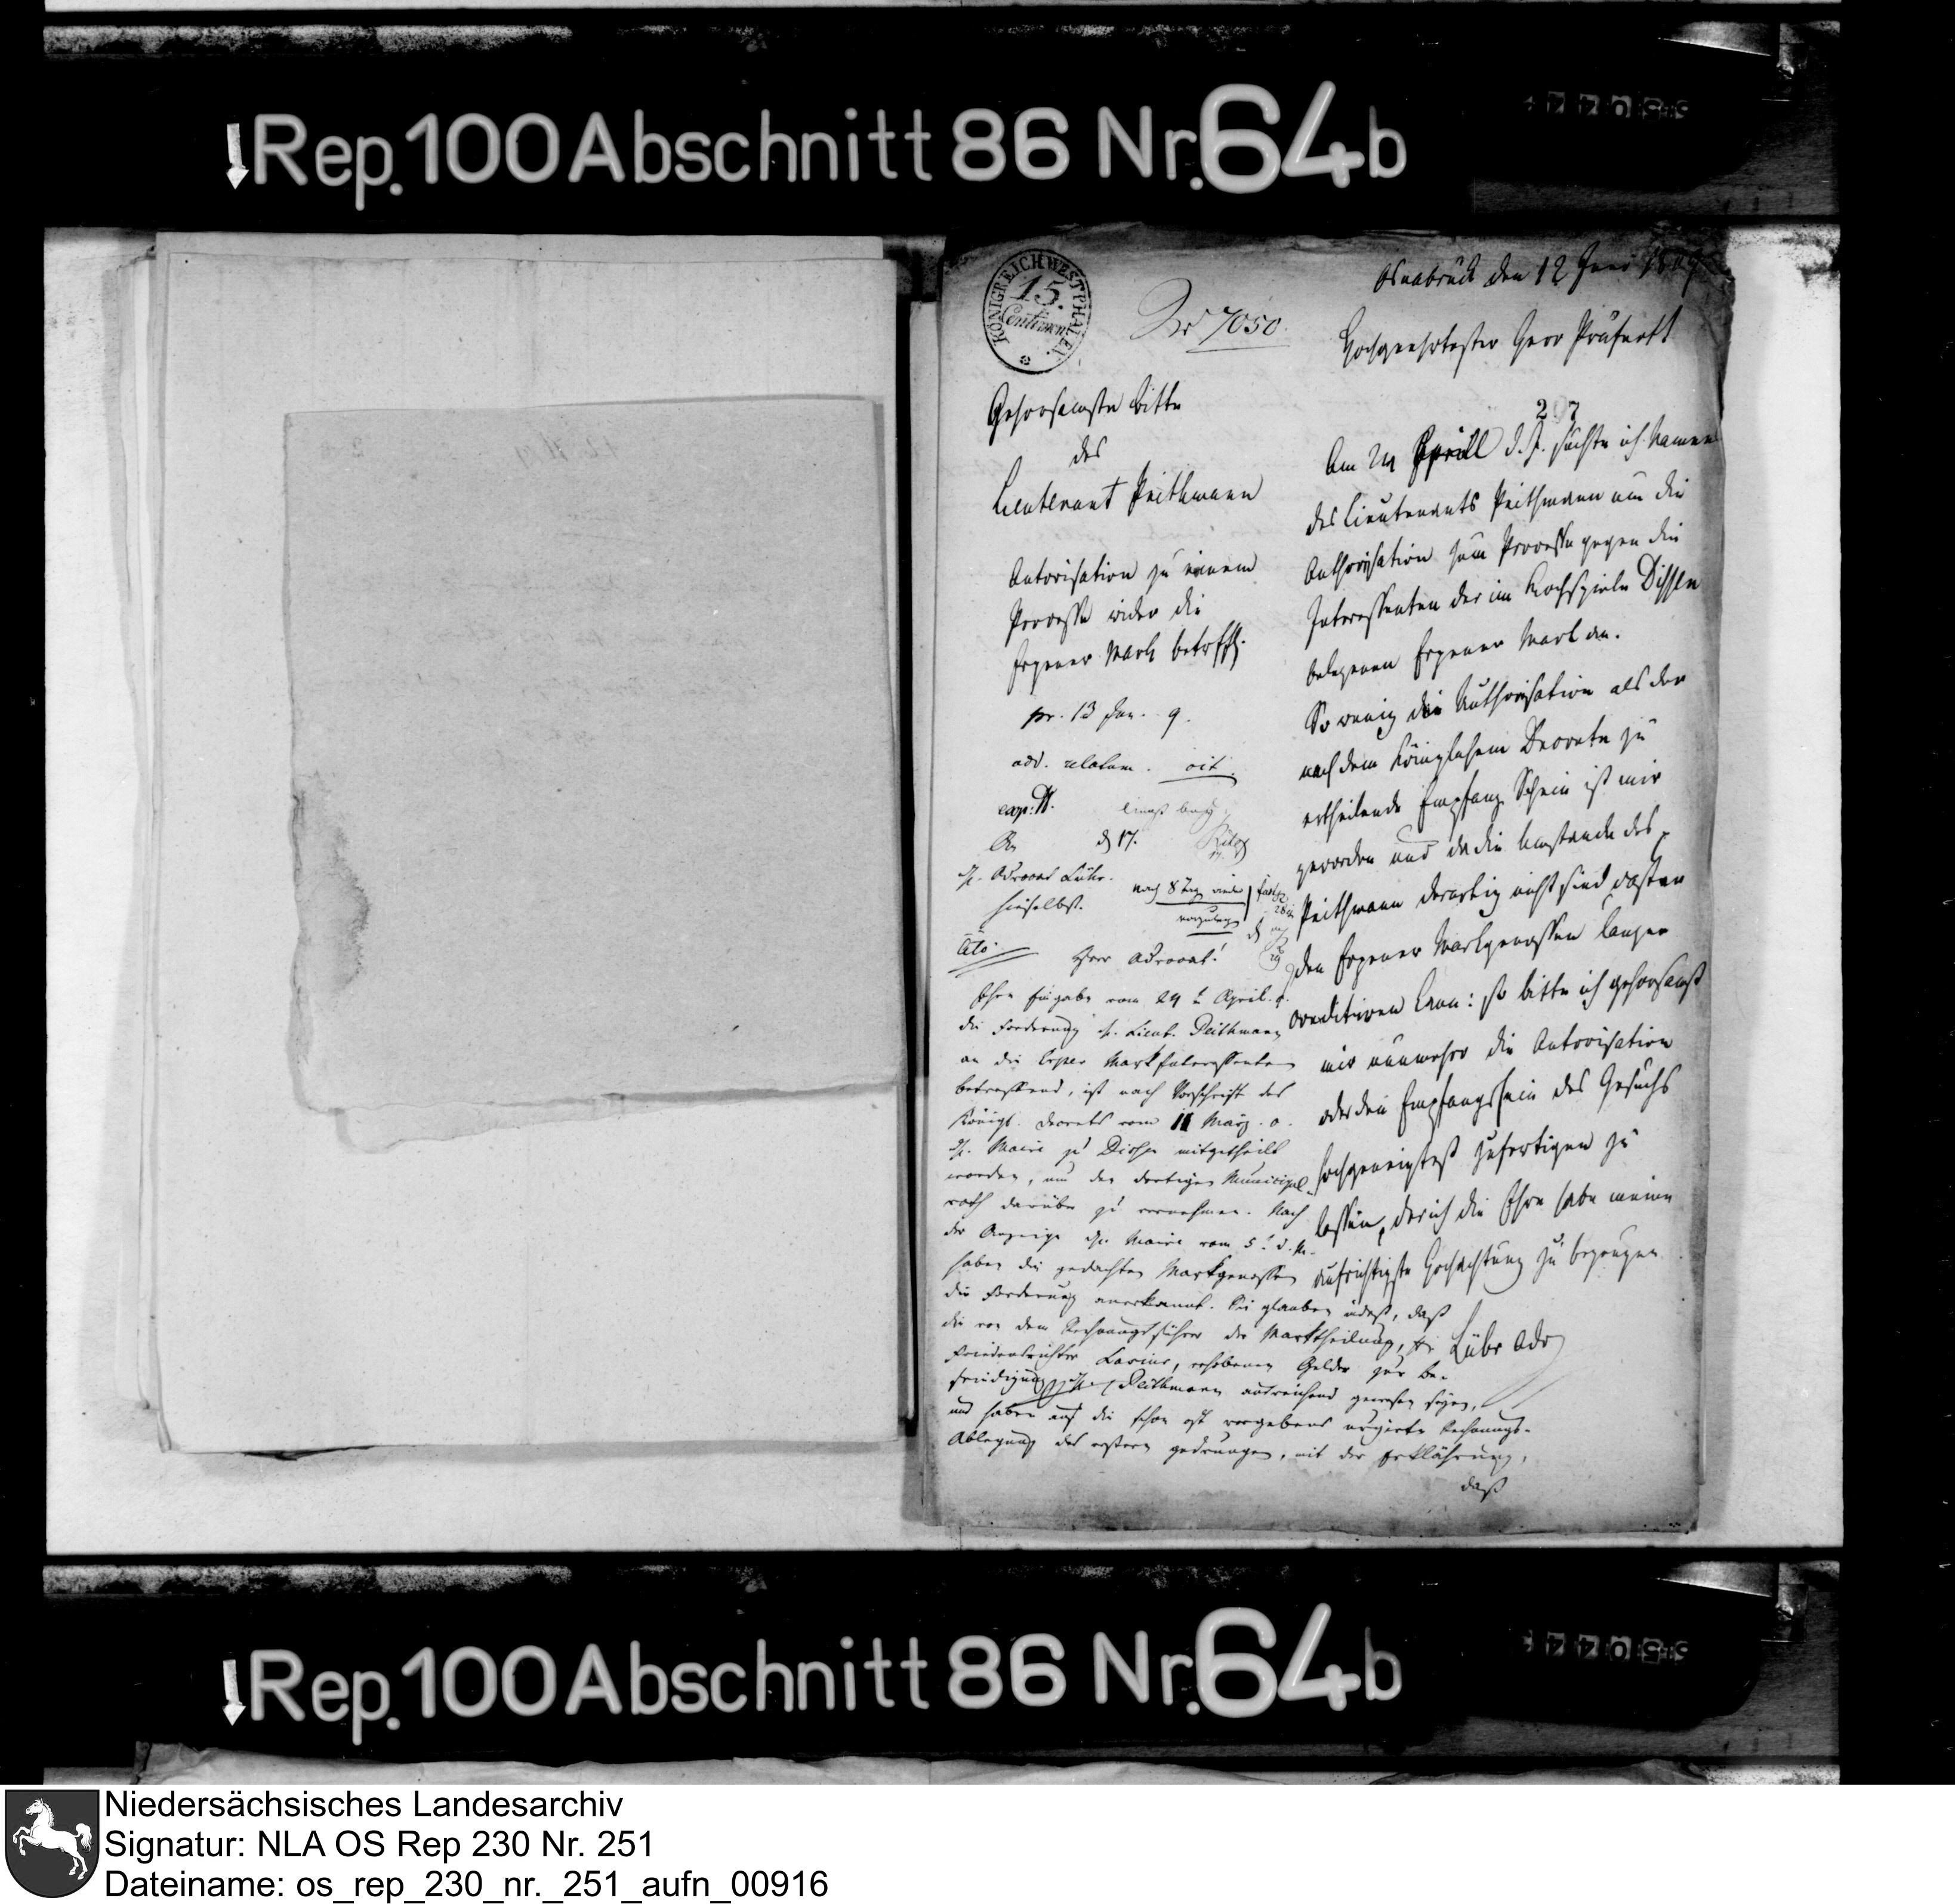 Rep. 100 Abschnitt 86 Nr. 64b
KÖNIGREICH WESTPHALEN
15.
Centimen
Nr 7050.
Osnabrück den 12 Juni 1809
Hochgeehrtester Herr Präfect
Gehorsamste Bitte
des
Lieutenant Peithmann
Autorisation zu einem
Processe wider die
Erpener Mark betreffd.
pr. 13 Jun. 9.
adv. relatum. cit.
exp.
An d 17.
H. Advocat Lühr.
hieselbst.
nach 8 Tag wieder
vorzulegen
Cito
Herr Advocat!
Ihre Eingabe vom 24 t April. c.
die Forderung H. Lieut. Peithmann
an die Erper Mark Interessenten
betreffend, ist nach Vorschrift des
Königl. Decrets vom 11 März. c.
H. Maire zu Dissen mitgetheilt
worden, um den dortigen Municipal-
rath darüber zu vernehmen. Nach
der Anzeige H. Maire vom 5 t d. M.
haben die gedachten Markgenossen
die Forderung anerkannt. Sie glauben indeß, daß
die von dem Rechnungsführer der Marktheilung, H.
Friedensrichter erhobenen Gelder zur Be-
friedigung H. Peithmann ausreichend gewesen seyen,
und haben auf die schon oft vergebens urgirte Rechnungs-
Ablegung des erstern gedrungen, mit der Erklährung,
daß
207
Am 24 April d. J. suchte ich Namens
des Lieutenants Peithmann um die
Authorisation zum Processe gegen die
Interessenten der im Kirchspiele Dissen
belegenen Erpener Mark an.
So wenig die Authorisation als der
nach dem Königlichem Decrete zu
ertheilende Empfang Schein ist mir
geworden und da die Umstände des
Peithmann derartig nicht sind daß er
den Erpener Markgenossen länger
creditiren kann: so bitte ich gehorsamst
mir nunmehr die Autorisation
oder den Empfangschein des Gesuchs
hochgeneigtest zufertigen zu
lassen, der ich die Ehre habe meine
aufrichtigste Hochachtung zu bezeugen
Lühr Adv
Rep. 100 Abschnitt 86 Nr. 64b
Niedersächsisches Landesarchiv
Signatur: NLA OS Rep 230 Nr. 251
Dateiname: os_rep_230_nr._251_aufn_00916